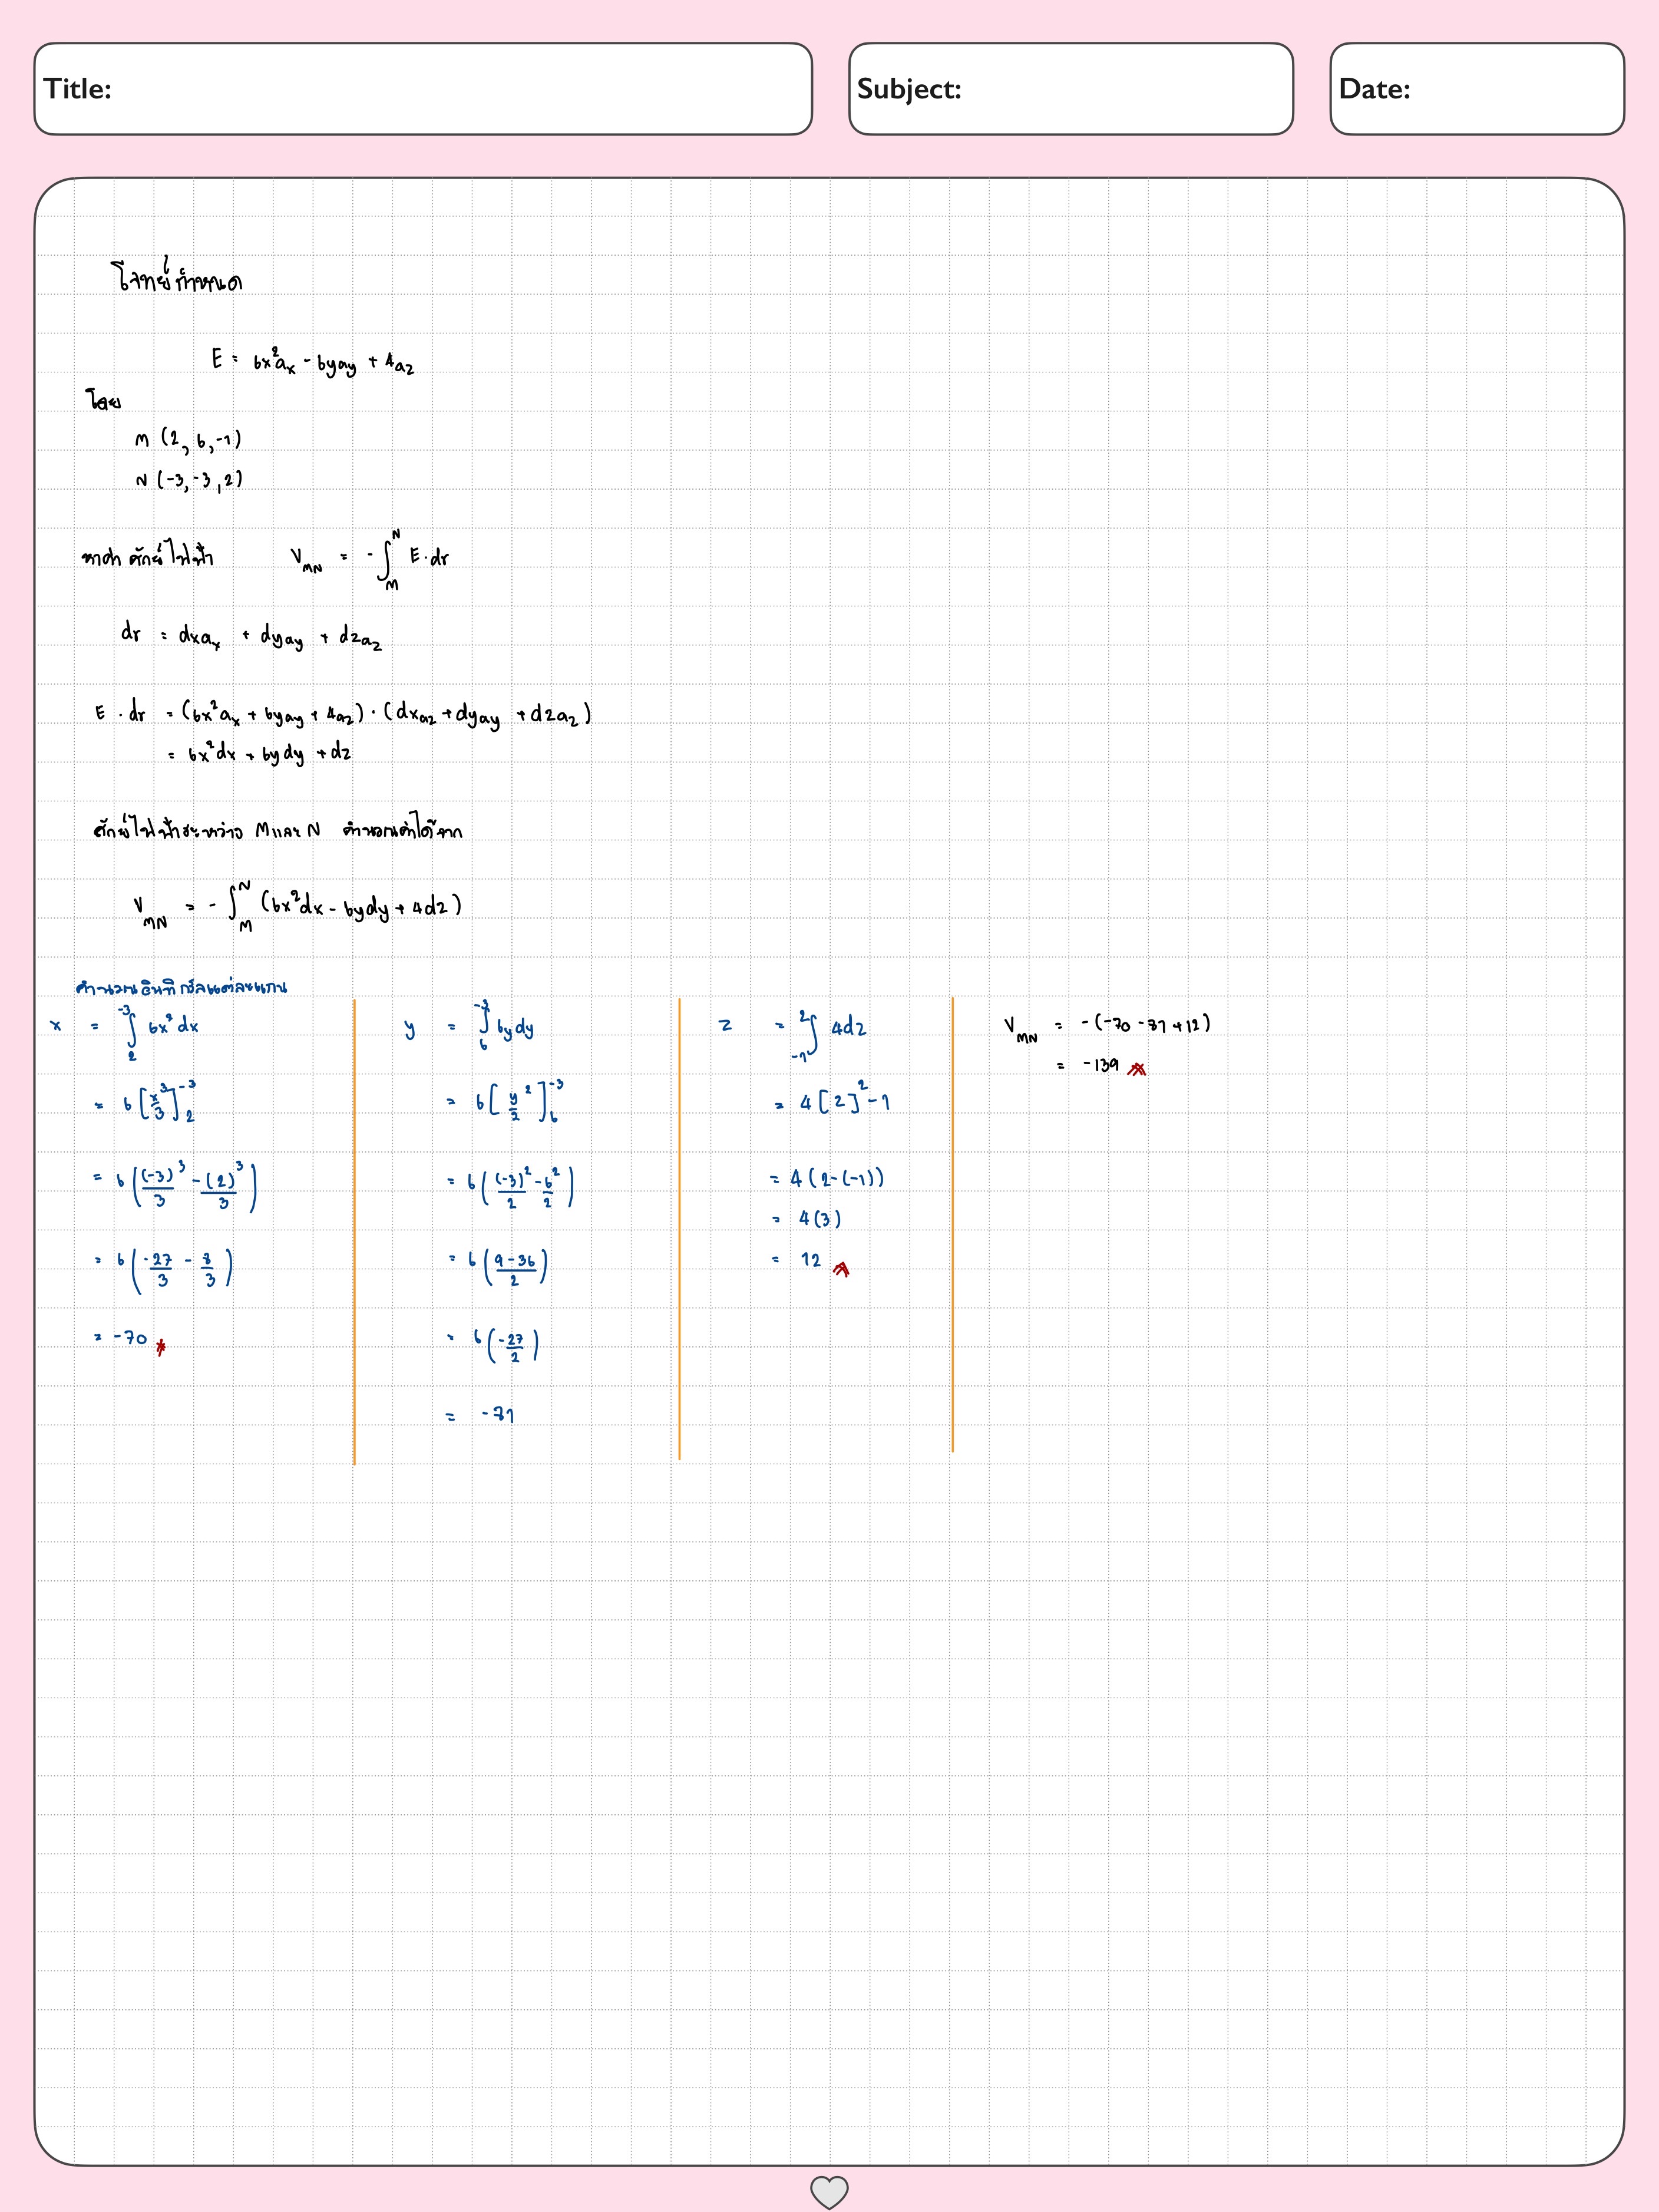 Title:
Subject:
Date:
โจทย์กำหนด
E = 6x²aₓ - 6yay + 4az
โดย
M (2, 6, -1)
N (-3, -3, 2)
หาค่า ศักย์ไฟฟ้า V_MN = - ∫_M^N E · dr
dr = dxaₓ + dyay + dzaz
E · dr = (6x²aₓ + 6yay + 4az) · (dxaz + dyay + dzaz)
= 6x²dx + 6ydy + dz
ศักย์ไฟฟ้าระหว่าง M และ N คำนวณค่าได้จาก
V_MN = - ∫_M^N (6x²dx - 6ydy + 4dz)
คำนวณอินทิกรัลแต่ละแกน
x = ∫_2^-3 6x² dx
= 6 [x³/3]_2^-3
= 6 ((-3)³/3 - (2)³/3)
= 6 (-27/3 - 8/3)
= -70
y = ∫_6^-3 6y dy
= 6 [y²/2]_6^-3
= 6 ((-3)²/2 - 6²/2)
= 6 (9-36/2)
= 6 (-27/2)
= -81
z = ∫_-1^2 4dz
= 4 [z]² -1
= 4 (2-(-1))
= 4 (3)
= 12
V_MN = -(-70 -81 +12)
= -139